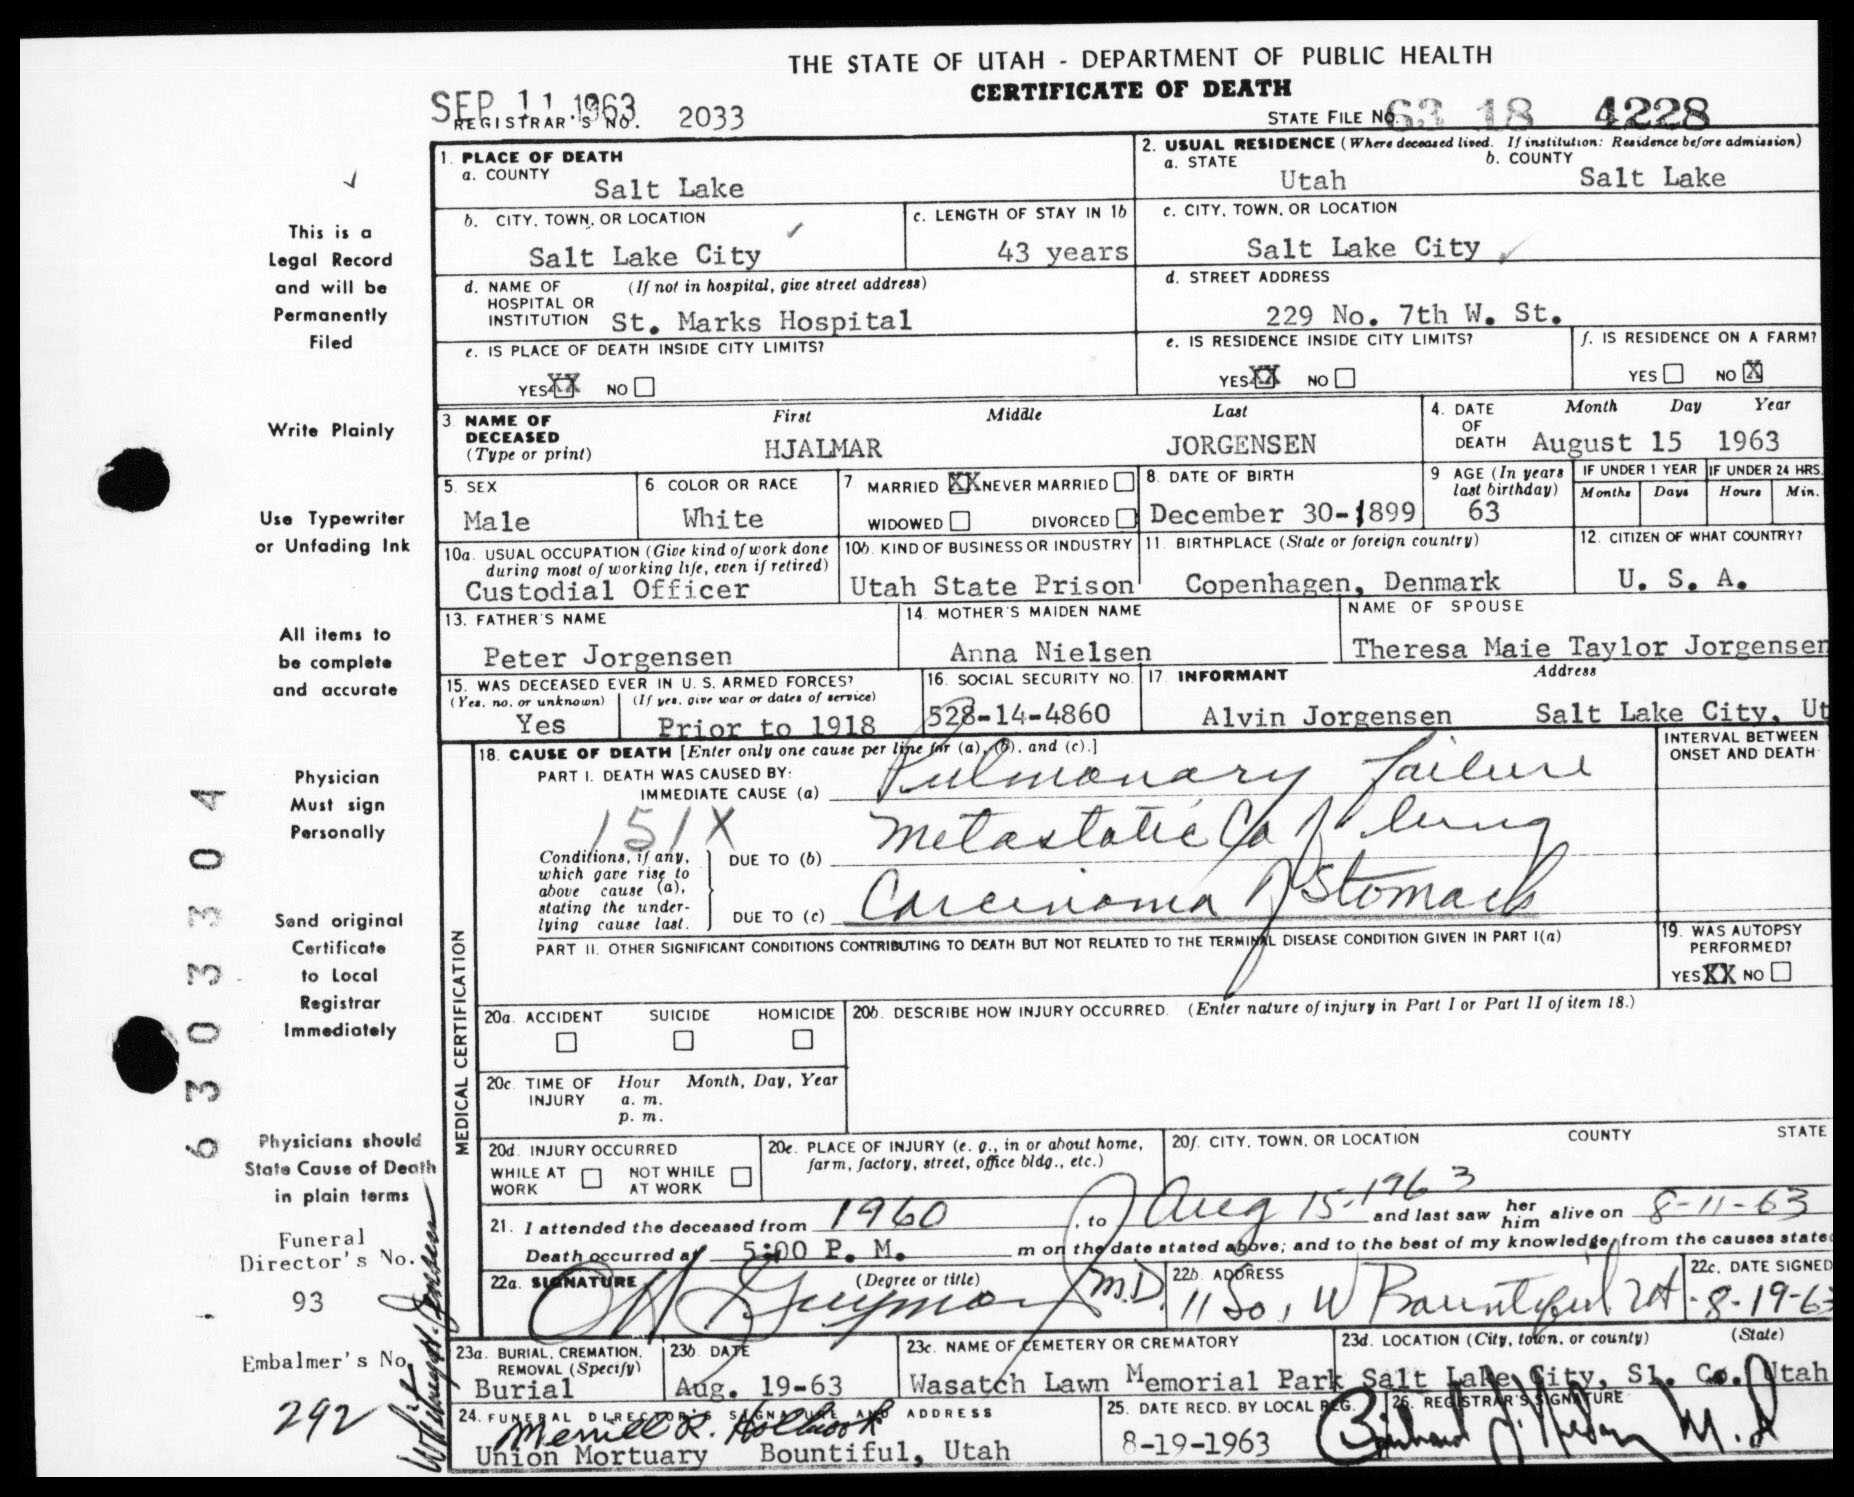 THE STATE OF UTAH - DEPARTMENT OF PUBLIC HEALTH
CERTIFICATE OF DEATH
SEP 11 1963
REGISTRAR'S NO. 2033
STATE FILE NO. 63 18 4228
1. PLACE OF DEATH
a. COUNTY
Salt Lake
2. USUAL RESIDENCE (Where deceased lived. If institution: Residence before admission)
a. STATE b. COUNTY
Utah Salt Lake
b. CITY, TOWN, OR LOCATION
Salt Lake City
c. LENGTH OF STAY IN 1b
43 years
c. CITY, TOWN, OR LOCATION
Salt Lake City
d. NAME OF HOSPITAL OR INSTITUTION (If not in hospital, give street address)
St. Marks Hospital
d. STREET ADDRESS
229 No. 7th W. St.
e. IS PLACE OF DEATH INSIDE CITY LIMITS?
YES XX NO
e. IS RESIDENCE INSIDE CITY LIMITS?
YES XX NO
f. IS RESIDENCE ON A FARM?
YES NO X
3 NAME OF DECEASED (Type or print)
First Middle Last
HJALMAR JORGENSEN
4. DATE OF DEATH
Month Day Year
August 15 1963
5. SEX
Male
6. COLOR OR RACE
White
7 MARRIED XX NEVER MARRIED
WIDOWED DIVORCED
8. DATE OF BIRTH
December 30-1899
9 AGE (In years last birthday)
63
IF UNDER 1 YEAR
Months Days
IF UNDER 24 HRS.
Hours Min.
10a. USUAL OCCUPATION (Give kind of work done during most of working life, even if retired)
Custodial Officer
10b. KIND OF BUSINESS OR INDUSTRY
Utah State Prison
11. BIRTHPLACE (State or foreign country)
Copenhagen, Denmark
12. CITIZEN OF WHAT COUNTRY?
U. S. A.
13. FATHER'S NAME
Peter Jorgensen
14. MOTHER'S MAIDEN NAME
Anna Nielsen
NAME OF SPOUSE
Theresa Maie Taylor Jorgensen
15. WAS DECEASED EVER IN U. S. ARMED FORCES?
(Yes, no, or unknown) (If yes, give war or dates of service)
Yes Prior to 1918
16. SOCIAL SECURITY NO.
528-14-4860
17 INFORMANT Address
Alvin Jorgensen Salt Lake City, Ut
MEDICAL CERTIFICATION
18. CAUSE OF DEATH [Enter only one cause per line for (a), (b), and (c).]
INTERVAL BETWEEN ONSET AND DEATH
PART I. DEATH WAS CAUSED BY:
IMMEDIATE CAUSE (a) Pulmonary failure
151X
Conditions, if any, which gave rise to above cause (a), stating the underlying cause last.
DUE TO (b) Metastatic Ca of lung
DUE TO (c) Carcinoma of Stomach
PART II. OTHER SIGNIFICANT CONDITIONS CONTRIBUTING TO DEATH BUT NOT RELATED TO THE TERMINAL DISEASE CONDITION GIVEN IN PART I(a)
19. WAS AUTOPSY PERFORMED?
YES XX NO
20a. ACCIDENT SUICIDE HOMICIDE
20b. DESCRIBE HOW INJURY OCCURRED. (Enter nature of injury in Part I or Part II of item 18.)
20c. TIME OF INJURY Hour Month, Day, Year
a. m.
p. m.
20d. INJURY OCCURRED
WHILE AT WORK NOT WHILE AT WORK
20e. PLACE OF INJURY (e. g., in or about home, farm, factory, street, office bldg., etc.)
20f. CITY, TOWN, OR LOCATION COUNTY STATE
21. I attended the deceased from 1960, to Aug 15-1963 and last saw her him alive on 8-11-63
Death occurred at 5:00 P. M. m on the date stated above; and to the best of my knowledge, from the causes stated
22a. SIGNATURE (Degree or title)
Guymon M.D.
22b. ADDRESS
11 So, W Bountiful Ut
22c. DATE SIGNED
8-19-63
23a. BURIAL, CREMATION, REMOVAL (Specify)
Burial
23b. DATE
Aug. 19-63
23c. NAME OF CEMETERY OR CREMATORY
Wasatch Lawn Memorial Park
23d. LOCATION (City, town, or county) (State)
Salt Lake City, Sl. Co. Utah
24. FUNERAL DIRECTOR'S SIGNATURE AND ADDRESS
Merrill R. Holbrook
Union Mortuary Bountiful, Utah
25. DATE RECD. BY LOCAL REG.
8-19-1963
26. REGISTRAR'S SIGNATURE
M. D
This is a
Legal Record
and will be
Permanently
Filed
Write Plainly
Use Typewriter
or Unfading Ink
All items to
be complete
and accurate
Physician
Must sign
Personally
Send original
Certificate
to Local
Registrar
Immediately
Physicians should
State Cause of Death
in plain terms
Funeral
Director's No.
93
Embalmer's No.
292
6303304